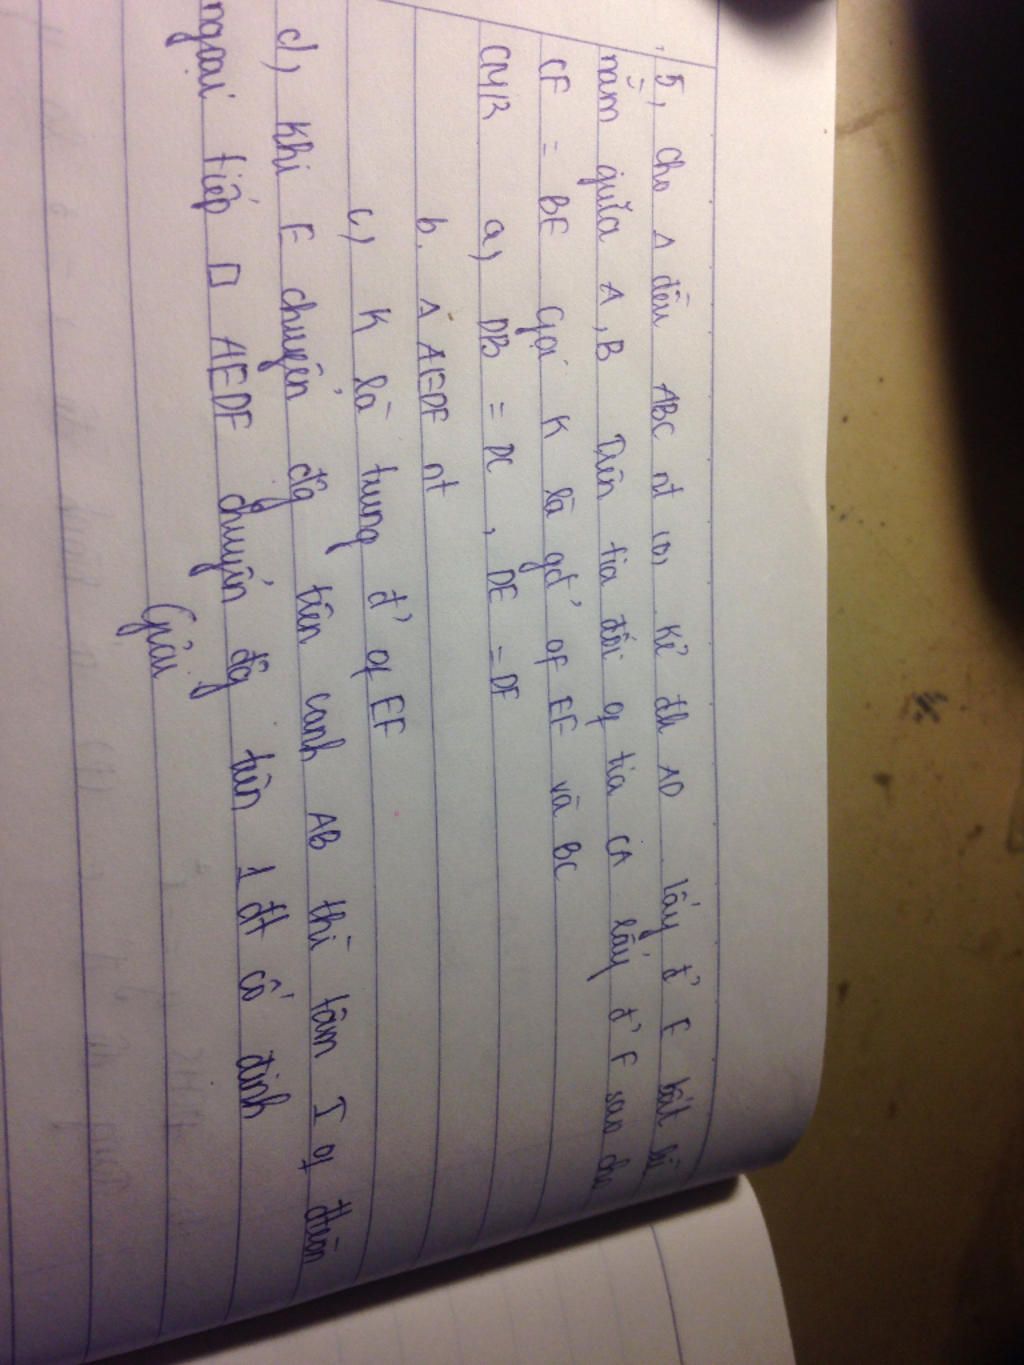 5, cho Δ đều ABC nt (O) kẻ đk AD lấy đ' E bất kì
nằm giữa A, B Trên tia đối of tia CA lấy đ' F sao cho
CF = BE Gọi K là gđ' of EF và BC
CMR a, DB = DC, DE = DF
b. Δ AEDF nt
c, K là trung đ' of EF
d, Khi E chuyển đg trên cạnh AB thì tâm I of đtròn
ngoại tiếp □ AEDF chuyển đg trên 1 đt cố định
Giải